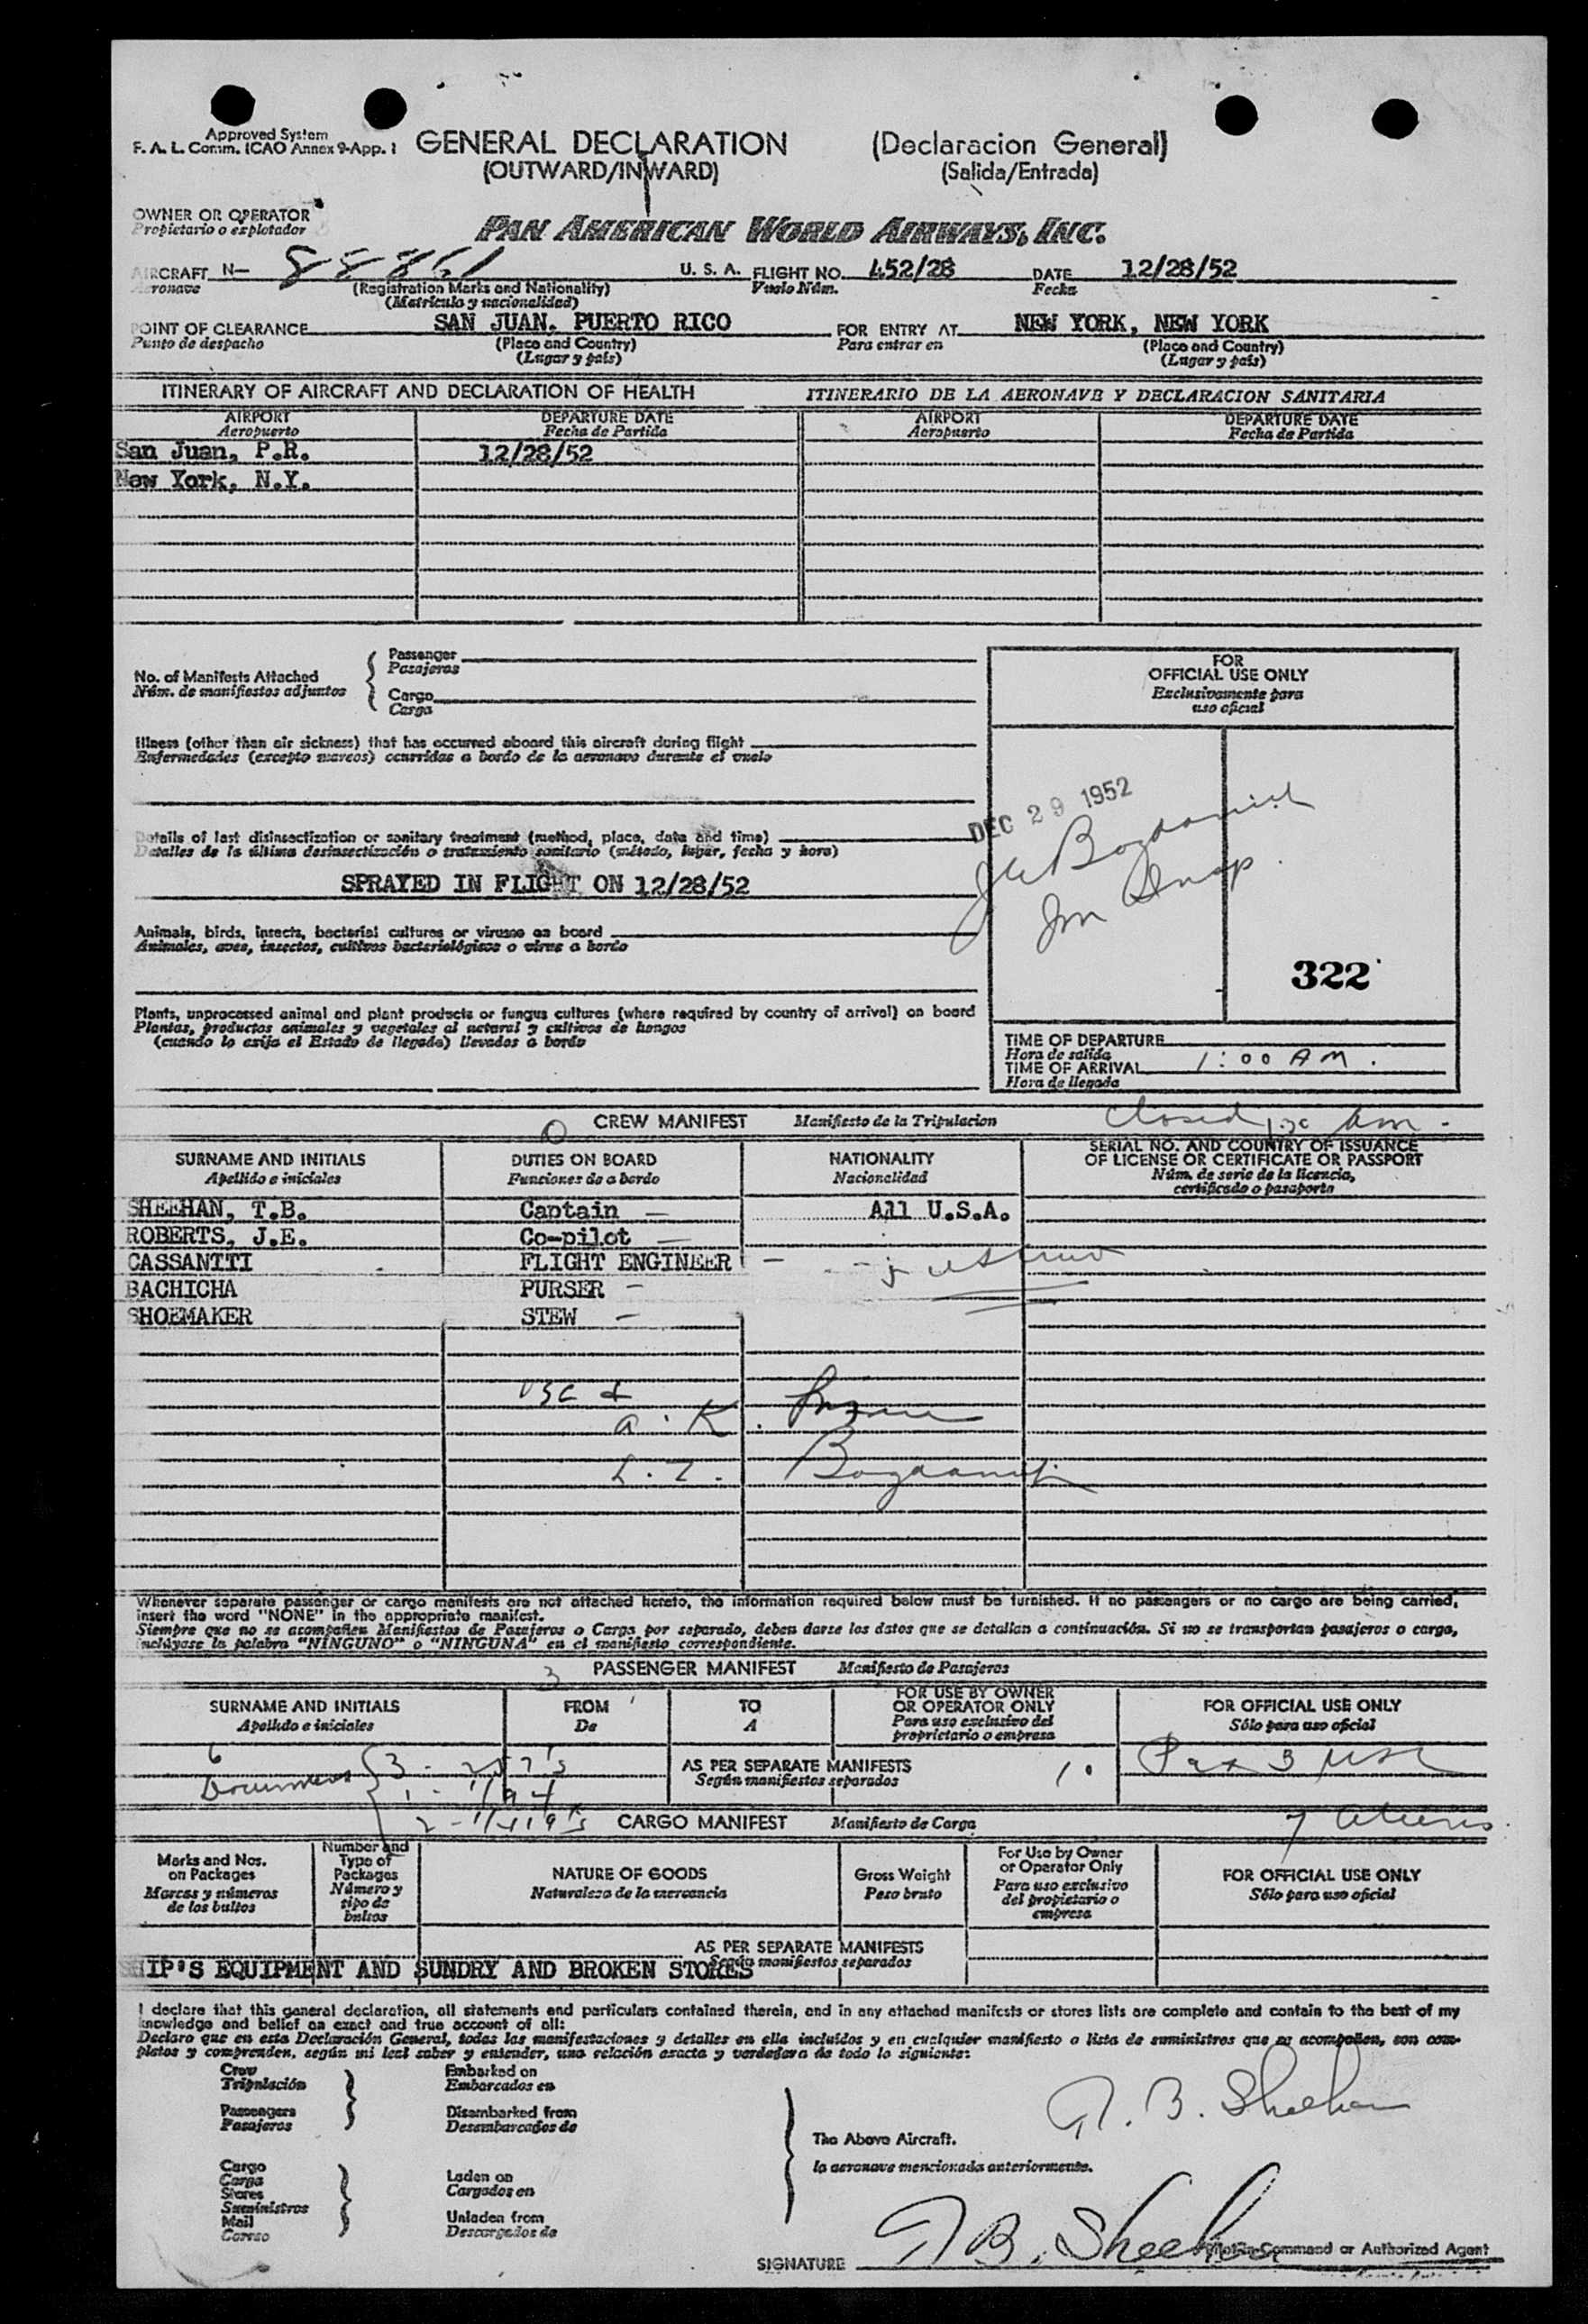 Approved System
F. A. L. Comm. ICAO Annex 9-App. 1
GENERAL DECLARATION (Declaracion General)
(OUTWARD/INWARD) (Salida/Entrada)
OWNER OR OPERATOR
Propietario o explotador
PAN AMERICAN WORLD AIRWAYS, INC.
AIRCRAFT N- 88861 U. S. A. FLIGHT NO. 452/28 DATE 12/28/52
Aeronave (Registration Marks and Nationality) Vuelo Núm. Fecha
(Matricula y nacionalidad)
POINT OF CLEARANCE SAN JUAN, PUERTO RICO FOR ENTRY AT NEW YORK, NEW YORK
Punto de despacho (Place and Country) Para entrar en (Place and Country)
(Lugar y país) (Lugar y país)
ITINERARY OF AIRCRAFT AND DECLARATION OF HEALTH ITINERARIO DE LA AERONAVE Y DECLARACION SANITARIA
AIRPORT DEPARTURE DATE AIRPORT DEPARTURE DATE
Aeropuerto Fecha de Partida Aeropuerto Fecha de Partida
San Juan, P.R. 12/28/52
New York, N.Y.
No. of Manifests Attached
Núm. de manifiestos adjuntos
Passenger
Pasajeros
Cargo
Carga
FOR
OFFICIAL USE ONLY
Exclusivamente para
uso oficial
Illness (other than air sickness) that has occurred aboard this aircraft during flight
Enfermedades (excepto mareos) ocurridas a bordo de la aeronave durante el vuelo
DEC 29 1952
Details of last disinsectization or sanitary treatment (method, place, date and time)
Detalles de la última desinsectización o tratamiento sanitario (método, lugar, fecha y hora)
SPRAYED IN FLIGHT ON 12/28/52
Animals, birds, insects, bacterial cultures or viruses on board
Animales, aves, insectos, cultivos bacteriológicos o virus a bordo
322
Plants, unprocessed animal and plant products or fungus cultures (where required by country of arrival) on board
Plantas, productos animales y vegetales al natural y cultivos de hongos
(cuando lo exija el Estado de llegada) llevados a bordo
TIME OF DEPARTURE
Hora de salida
TIME OF ARRIVAL 1:00 AM.
Hora de llegada
CREW MANIFEST Manifiesto de la Tripulacion Closed
SURNAME AND INITIALS DUTIES ON BOARD NATIONALITY SERIAL NO. AND COUNTRY OF ISSUANCE
OF LICENSE OR CERTIFICATE OR PASSPORT
Apellido e iniciales Funciones de a bordo Nacionalidad Núm. de serie de la licencia,
certificado o pasaporte
SHEEHAN, T.B. Captain — All U.S.A.
ROBERTS, J.E. Co-pilot —
CASSANTTI FLIGHT ENGINEER -
BACHICHA PURSER -
SHOEMAKER STEW -
Whenever separate passenger or cargo manifests are not attached hereto, the information required below must be furnished. If no passengers or no cargo are being carried,
insert the word "NONE" in the appropriate manifest.
Siempre que no se acompañen Manifiestos de Pasajeros o Carga por separado, deben darse los datos que se detallan a continuación. Si no se transportan pasajeros o carga,
inclúyase la palabra "NINGUNO" o "NINGUNA" en el manifiesto correspondiente.
3 PASSENGER MANIFEST Manifiesto de Pasajeros
SURNAME AND INITIALS FROM TO FOR USE BY OWNER
OR OPERATOR ONLY FOR OFFICIAL USE ONLY
Apellido e iniciales De A Para uso exclusivo del
propietario o empresa Sólo para uso oficial
6
Documents
AS PER SEPARATE MANIFESTS
Según manifiestos separados
CARGO MANIFEST Manifiesto de Carga
Marks and Nos.
on Packages
Marcas y números
de los bultos
Number and
Type of
Packages
Número y
tipo de
bultos
NATURE OF GOODS
Naturaleza de la mercancia
Gross Weight
Peso bruto
For Use by Owner
or Operator Only
Para uso exclusivo
del propietario o
empresa
FOR OFFICIAL USE ONLY
Sólo para uso oficial
AS PER SEPARATE MANIFESTS
Según manifiestos separados
SHIP'S EQUIPMENT AND SUNDRY AND BROKEN STORES
I declare that this general declaration, all statements and particulars contained therein, and in any attached manifests or stores lists are complete and contain to the best of my
knowledge and belief an exact and true account of all:
Declaro que en esta Declaración General, todas las manifestaciones y detalles en ella incluídos y en cualquier manifiesto o lista de suministros que se acompañen, son com-
pletos y comprenden, según mi leal saber y entender, una relación exacta y verdadera de todo lo siguiente:
Crew
Tripulación
Passengers
Pasajeros
Embarked on
Embarcados en
Disembarked from
Desembarcados de
Cargo
Carga
Stores
Suministros
Mail
Correo
Laden on
Cargados en
Unladen from
Descargados de
The Above Aircraft.
la aeronave mencionada anteriormente.
T. B. Sheehan
T B. Sheehan
SIGNATURE Pilot-in-Command or Authorized Agent